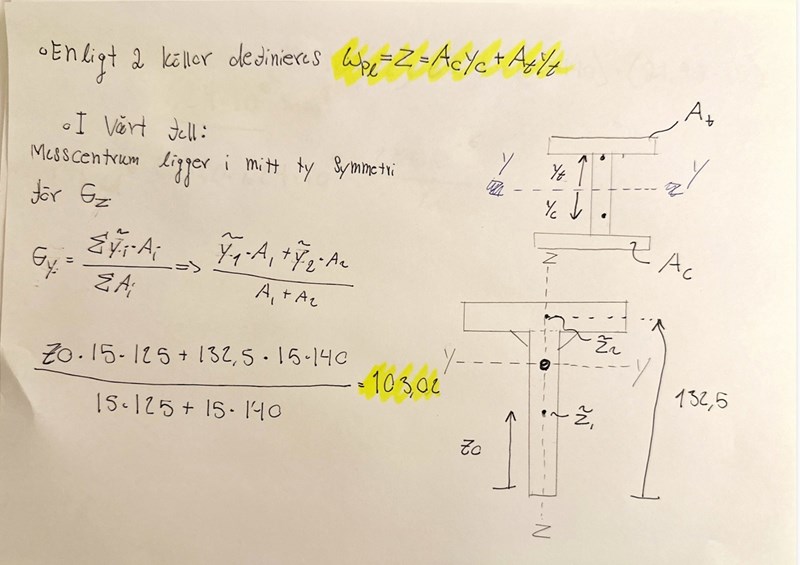 Enligt 2 källor definieres Wpl = Z = Acyc + Atyt
I Vårt fall:
Masscentrum ligger i mitt ty Symmetri
för Gz
Gy = Σỹi·Ai / ΣAi => ỹ1·A1 + ỹ2·A2 / A1 + A2
70·15·125 + 132,5·15·140 / 15·125 + 15·140 = 103,02
At
Y
yt
Y
yc
Z
Ac
z̃2
Y
Y
132,5
z̃1
70
Z